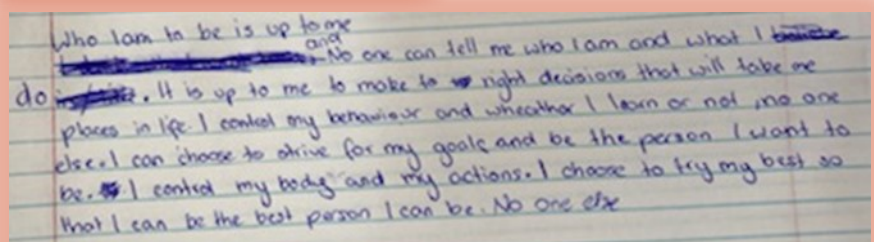 Who I am to be is up to me
and
No one can tell me who I am and what I
do. It is up to me to make to right decisions that will take me
places in life. I control my behaviour and wheather I learn or not, no one
else. I can choose to strive for my goals and be the person I want to
be. I control my body and my actions. I choose to try my best so
that I can be the best person I can be. No one else